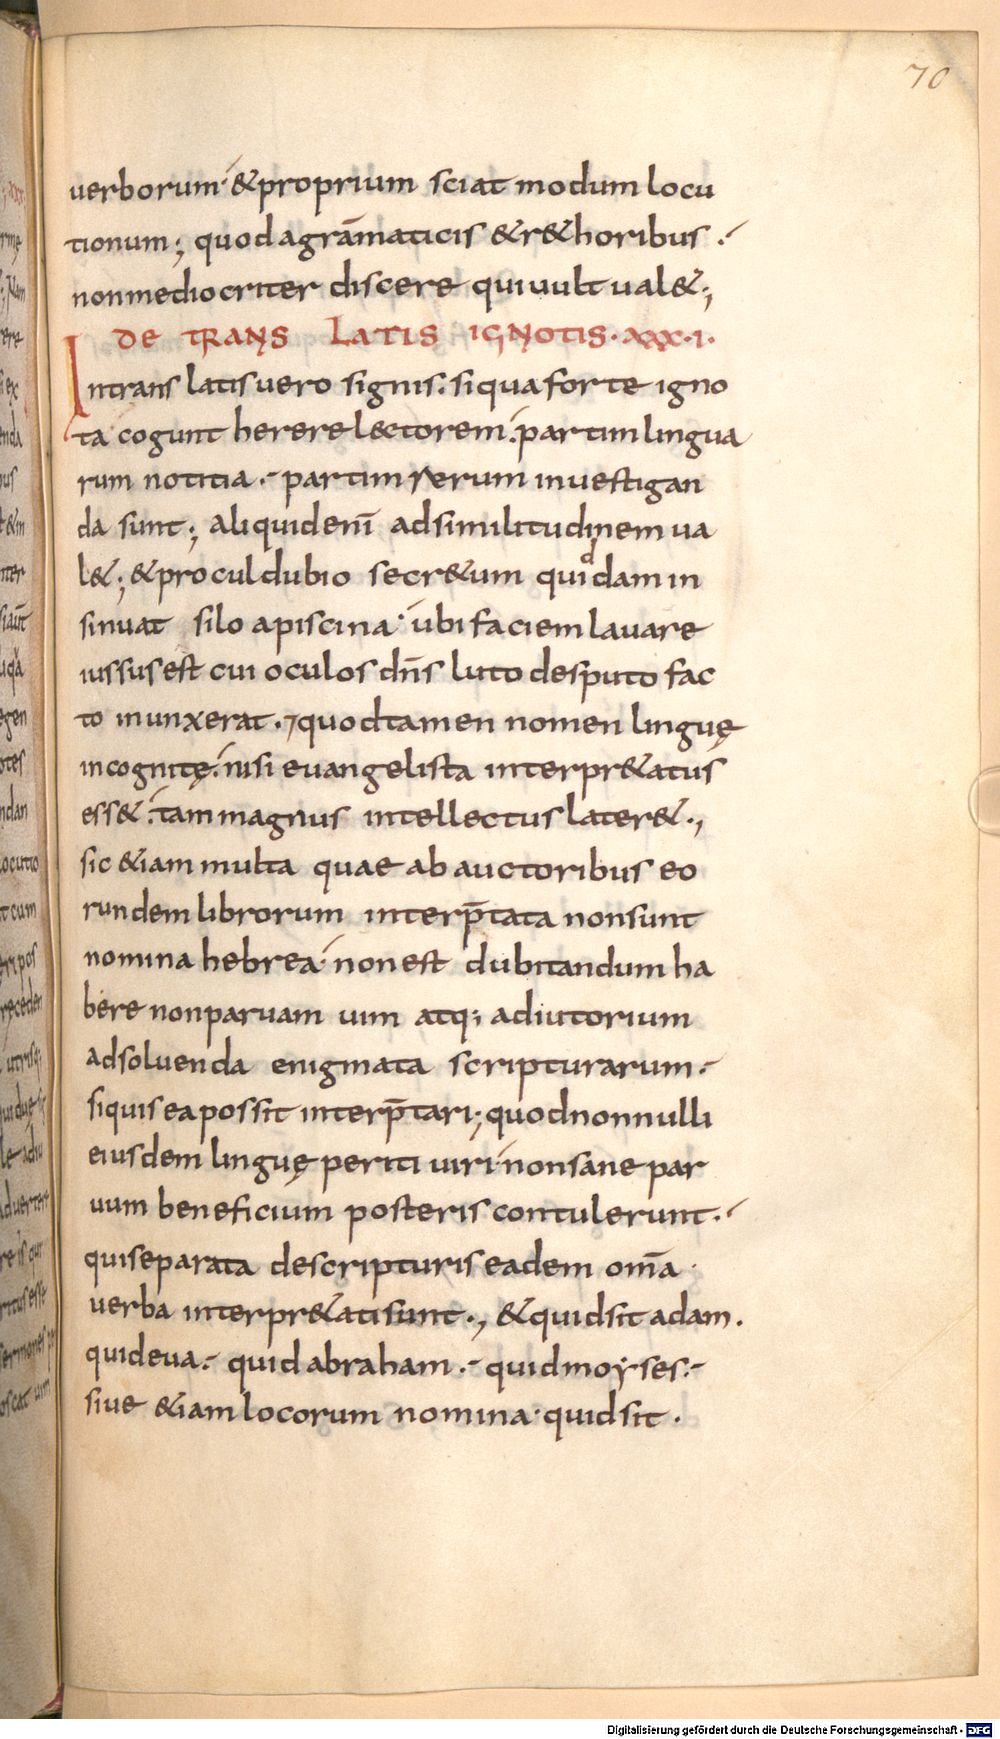 70
uerborum· &proprium sciat modum locu
tionum; quod agrāmaticis &r&horibus .-
nonmediocriter discere qui uult ual&;
DE TRANS LATIS IGNOTIS·XXX·I·
Intrans latis uero signis: siqua forte igno
ta cogunt herere lectorem: partim lingua
rum notitia .- partim rerum inuestigan
da sunt; aliquid enī adsimilitudinem ua
l&; &procul dubio secr&um quiddam in
sinuat silo apiscina· ubi faciem lauare
iussus est cui oculos dn̄s luto desputo fac
to inunxerat .- quod tamen nomen linguę
incognitę: nisi euangelista interpr&atus
ess&: tam magnus intellectus later&.,
sic &iam multa quae ab auctoribus eo
rundem librorum interp̄tata non sunt
nomina hebrea· non est dubitandum ha
bere non paruam uim atq; adiutorium
adsoluenda enigmata scripturarum.-
siquis ea possit interp̄tari; quod nonnulli
eiusdem linguę periti uiri· non sane par
uum beneficium posteris contulerunt.-
qui separata descripturis eadem om̄a ·
uerba interpr&ati sunt., &quid sit adam.
quid eua.- quid abraham .- quid moyses.-
siue &iam locorum nomina· quid sit .
Digitalisierung gefördert durch die Deutsche Forschungsgemeinschaft - DFG